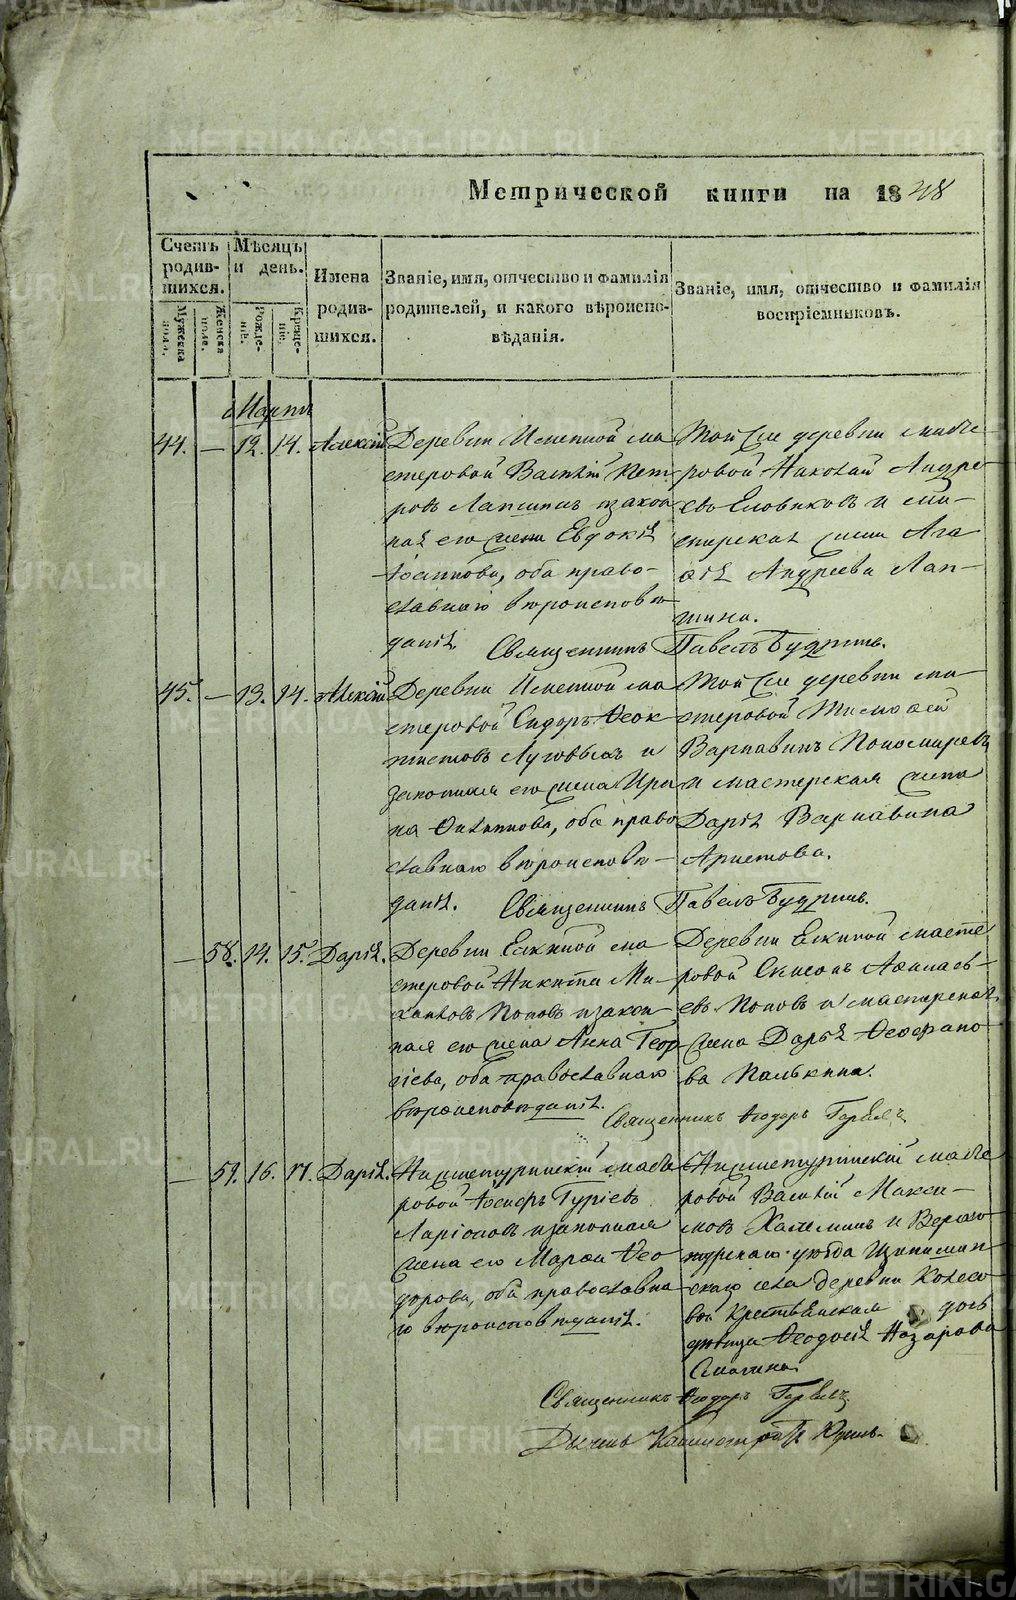 Метрической книги на 1848
Счетъ родив-шихся.
Мужеска пола.
Женска пола.
Мѣсяцъ и день.
Рожде-ніе.
Креще-ніе.
Имена родив-шихся.
Званіе, имя, отчество и фамилія
родителей, и какого вѣроиспо-
вѣданія.
Званіе, имя, отчество и фамилія
воспріемниковъ.
Мартъ
44. — 12. 14. Алексій
Деревни Исетной ма
стеровой Василій Пет
ровъ Лапшинъ и закон
ная его жена Евдокія
оба право-
славнаго вѣроисповѣ
данія.
Той же деревни масте
ровой Николай Андре
евъ и ма-
стерская жена Ага
фія Андреева Лап-
шина.
Священникъ Павелъ Будринъ.
45. — 13. 14. Алексій
Деревни Исетной ма
стеровой Сидоръ Ѳеок
тистовъ Луговыхъ и
законная его жена Ири
на оба право
славнаго вѣроисповѣ-
данія.
Той же деревни ма-
стеровой Тимоѳей
Варнавинъ Пономаревъ
и мастерская жена
Дарія Варнавина
Аристова.
Священникъ Павелъ Будринъ.
— 58. 14. 15. Дарія.
Деревни Елкиной ма
стеровой Никита Ми-
хайловъ Поповъ и закон
ная его жена Анна Геор
гіева, оба православнаго
вѣроисповѣданія.
Деревни Елкиной масте
ровой Аѳанась-
евъ Поповъ и мастерская
жена Дарья Ѳеофано
ва Палькина.
Священникъ Ѳеодоръ
— 59. 16. 17. Дарія.
Нижнетуринскій масте
ровой Іосифъ Гуріевъ
Ларіоновъ и законная
жена его Марѳа Ѳео
дорова, оба православна
го вѣроисповѣданія.
Нижнетуринскій масте
ровой Василій Макси-
мовъ Халеминъ и Верхо
турскаго уѣзда
скаго села деревни Колесо
вой крестьянская дочь
дѣвица Ѳеодосія Назарова
Смагина.
Священникъ Ѳеодоръ
Дьячекъ Каллистратъ Юринъ.
METRIKI.GASO-URAL.RU